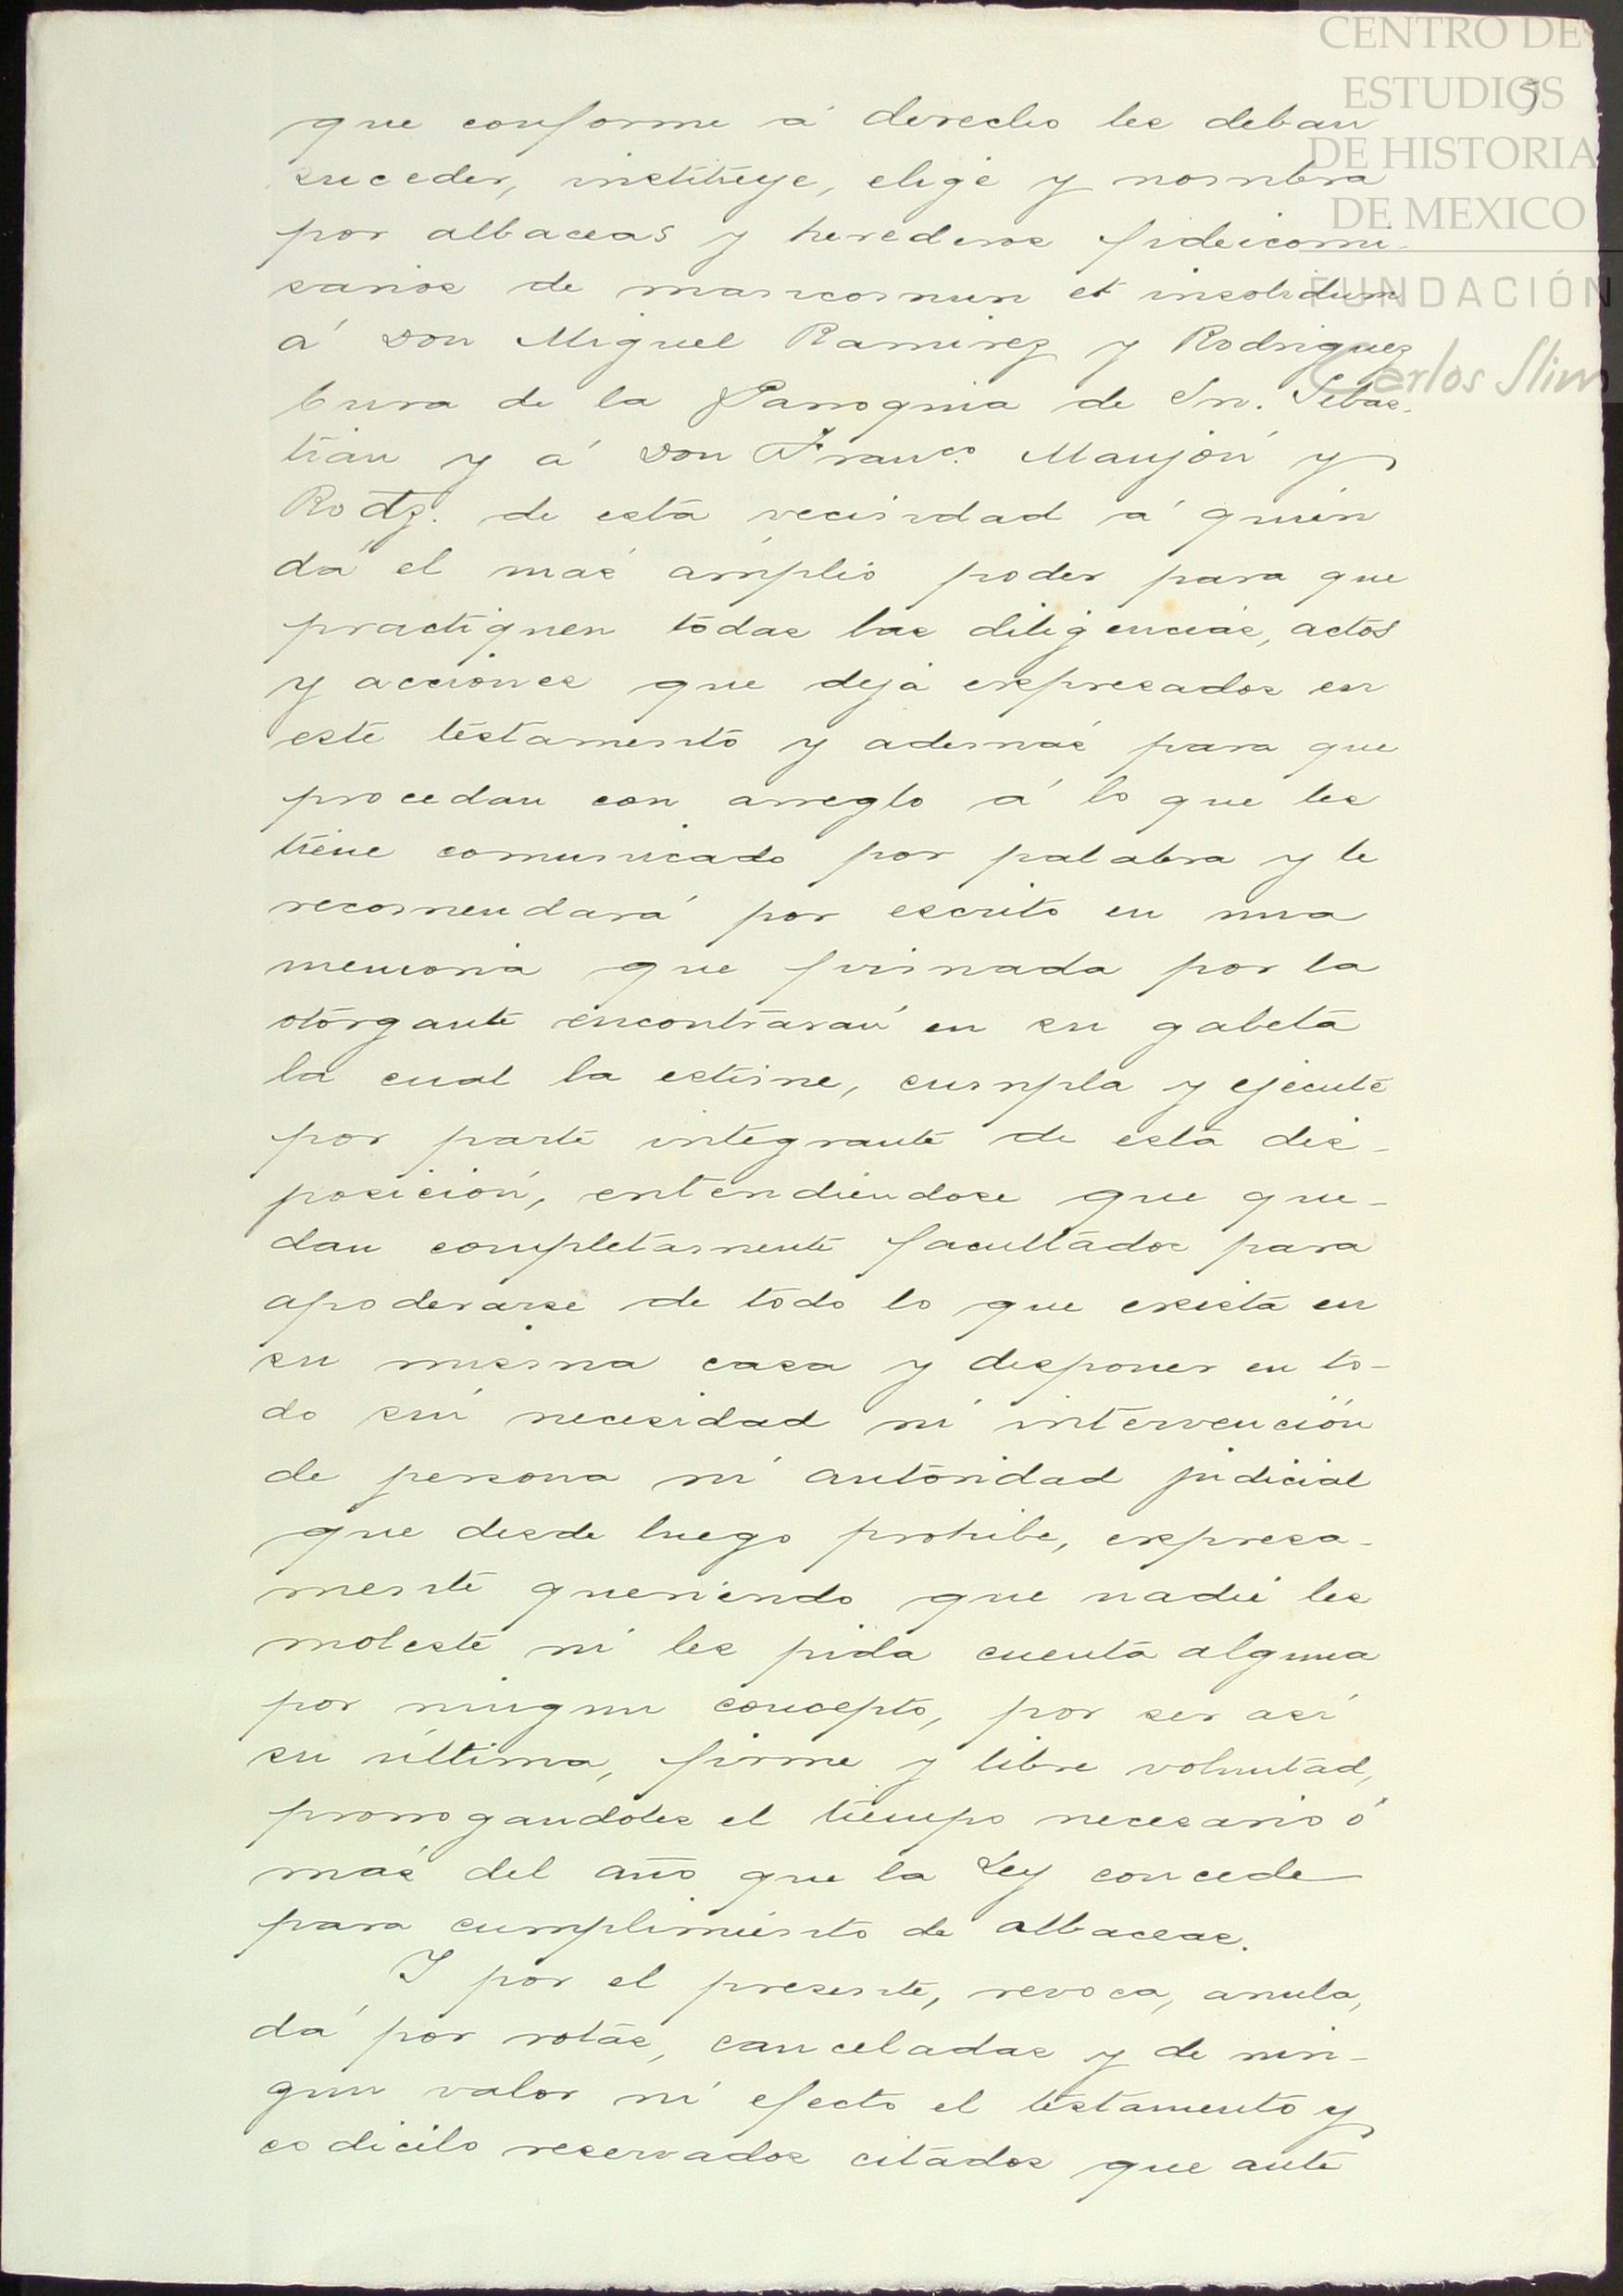 CENTRO DE
ESTUDIOS
DE HISTORIA
DE MEXICO
FUNDACIÓN
Carlos Slim
5
que conforme á derecho les deban
suceder, instituye, elige y nombra
por albaceas y herederos fideicomi-
sarios de mancomun et insolidum
á Don Miguel Ramirez y Rodriguez
Cura de la Parroquia de Sn. Sebas-
tián y á Don Franco. Manjón y
Rodz. de esta vecindad á quien
dá el más ámplio poder para que
practiquen todas las diligencias, actos
y acciones que deja expresados en
este testamento y además para que
procedan con arreglo á lo que les
tiene comunicado por palabra y le
recomendará por escrito en una
memoria que firmada por la
otorgante encontrarán en su gabeta
la cual la estime, cumpla y ejecute
por parte integrante de esta dis-
posición, entendiendose que que-
dan completamente facultados para
apoderarse de todo lo que exista en
su misma casa y disponer en to-
do sin necesidad ni intervención
de persona ni autoridad judicial
que desde luego prohibe, expresa-
mente queriendo que nadie les
moleste ni les pida cuenta alguna
por ningun concepto, por ser así
su última, firme y libre voluntad,
prorrogandoles el tiempo necesario ó
más del año que la Ley concede
para cumplimiento de albaceas.
Y por el presente, revoca, anula,
dá por rotas, canceladas y de nin-
gun valor ni efecto el testamento y
codicilo reservados citados que ante